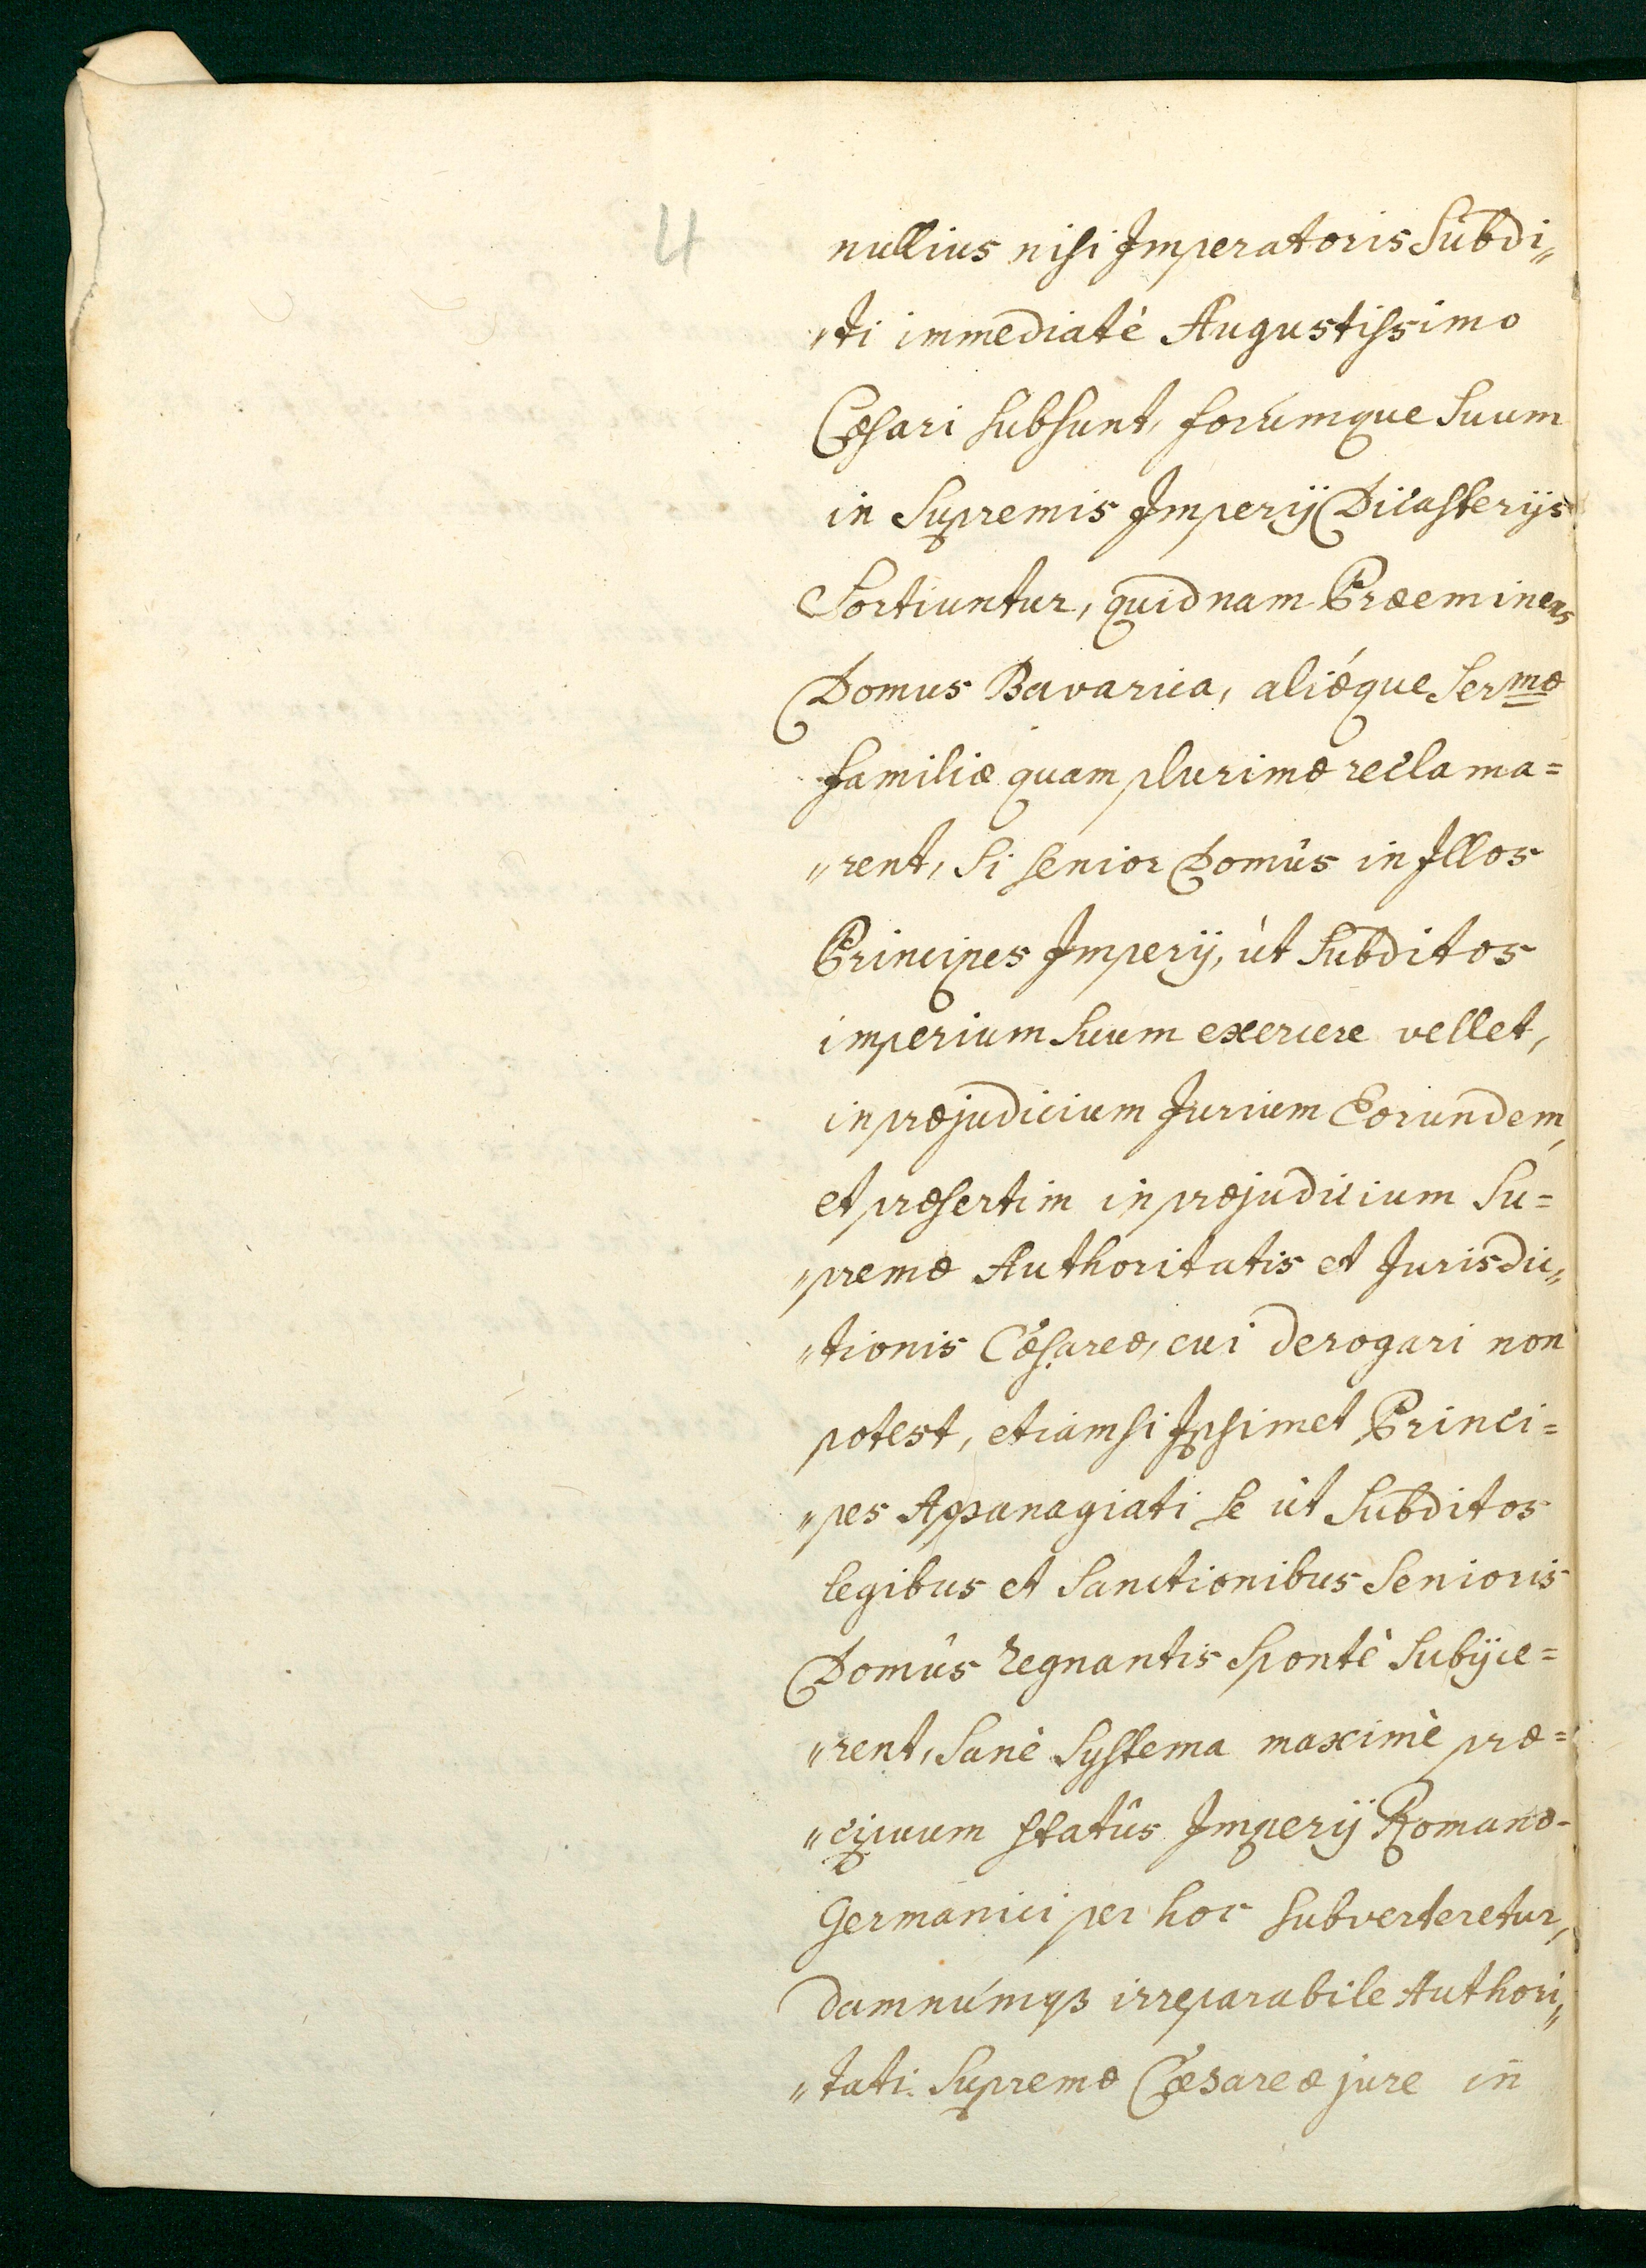 4
nullius nisi Imperatoris Subdi„
„ti immediatè Augustissimo
Cæsari subsunt, forúmque Suum
in Supremis Imperÿ Dicasterÿs
Sortiuntur, quidnam Præeminens
Domus Bavarica, aliǽque Sermæ
familiæ quam plurimæ reclama=
„rent, Si senior Domûs in Illos
Principes Imperÿ, ùt Subditos
imperium Suum exercere vellet,
in præjudicium Jurium Eorundem,
et præsertim in præjudicium Su=
„premæ Authoritatis et Jurisdic„
„tionis Cæsareæ, cui derogari non
potest, etiamsi Ipsimet Princi=
„pes Appanagiati se ùt Subditos
legibus et Sanctionibus Senioris
Domûs regnantis Spontè Subÿce=
„rent, Sanè Systema maximè præ=
„cipuum statûs Imperÿ Romano-
Germanici per hoc subverteretur,
damnúmqꝫ irreparabile Authori„
„tati Supremæ Cæsareæ jure in